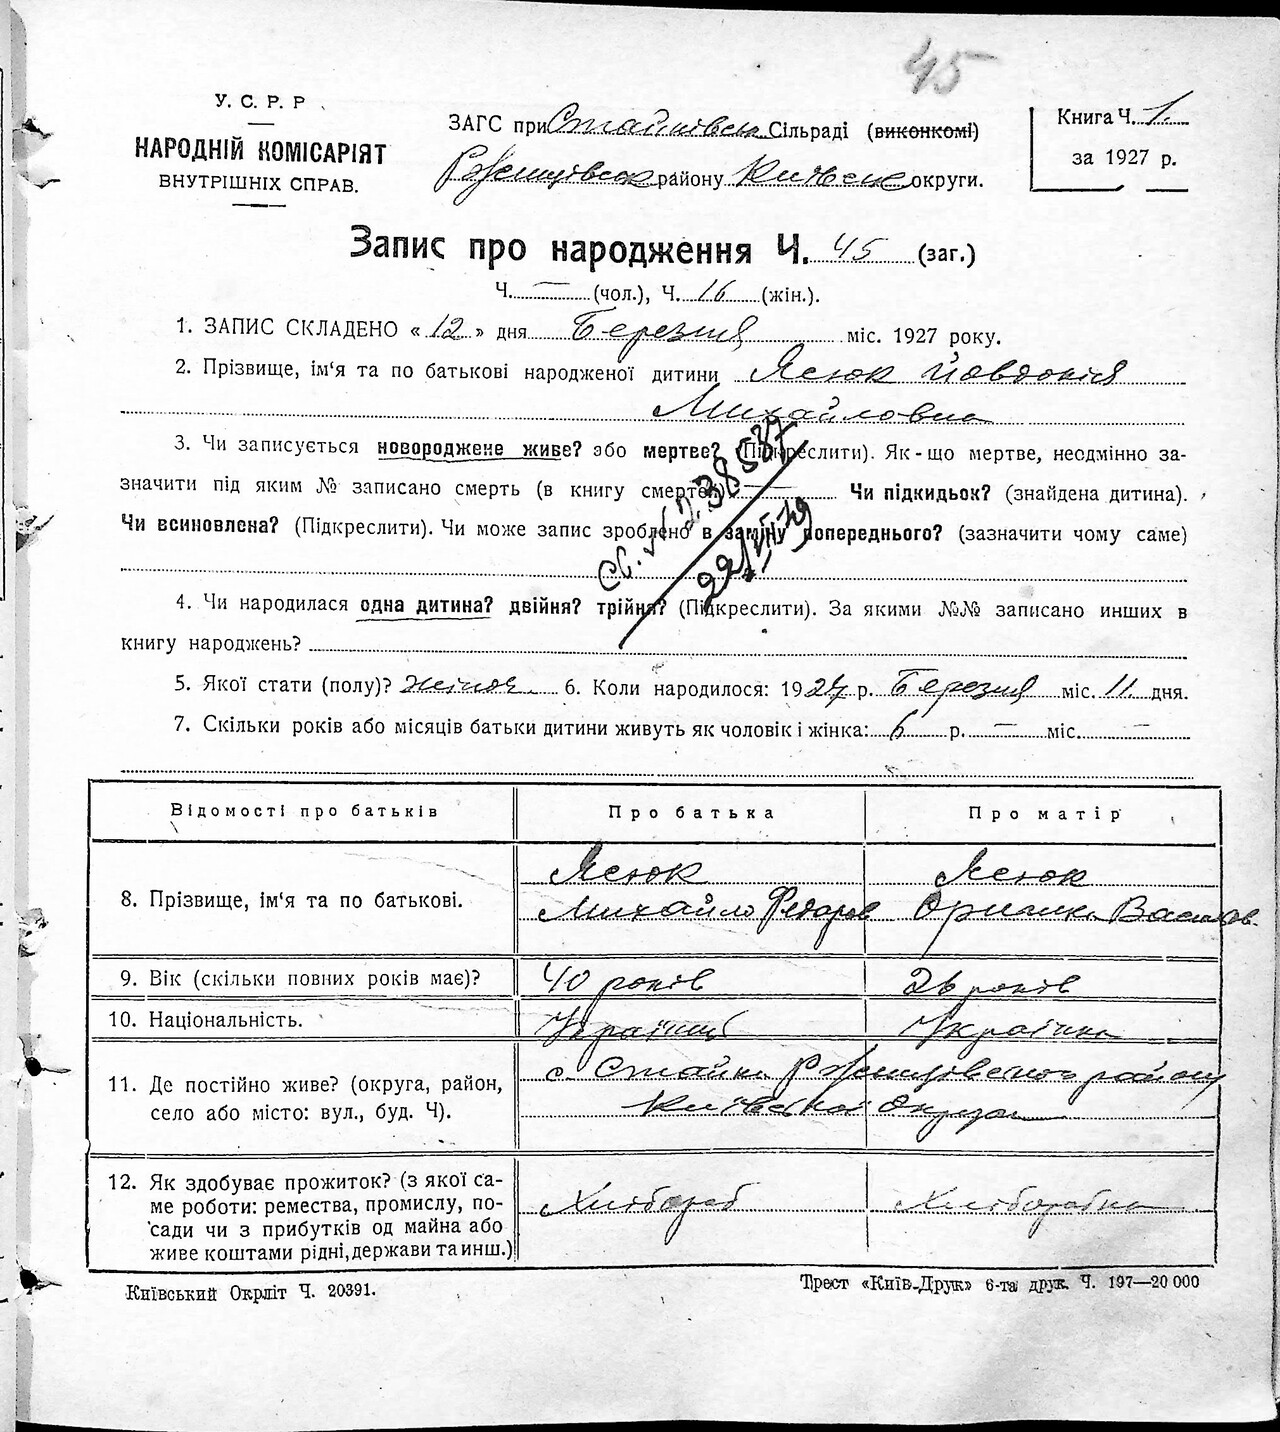 45
У. С. Р. Р.
НАРОДНІЙ КОМІСАРІЯТ
ВНУТРІШНІХ СПРАВ.
ЗАГС при Стайківськ Сільраді (виконкомі)
Ржищівськ району Київськ округи.
Книга Ч. 1.
за 1927 р.
Запис про народження Ч. 45 (заг.)
Ч. — (чол.), Ч. 16 (жін.).
1. ЗАПИС СКЛАДЕНО «12» дня Березня міс. 1927 року.
2. Прізвище, ім'я та по батькові народженої дитини Ясюк Йовдокія
Михайловна
3. Чи записується новороджене живе? або мертве? (Підкреслити). Як-що мертве, неодмінно за-
значити під яким № записано смерть (в книгу смертей) — Чи підкидьок? (знайдена дитина).
Чи всиновлена? (Підкреслити). Чи може запис зроблено в заміну попереднього? (зазначити чому саме)
38537
22/VIII-79
4. Чи народилася одна дитина? двійня? трійня? (Підкреслити). За якими №№ записано инших в
книгу народжень?
5. Якої стати (полу)? жіноч. 6. Коли народилося: 1927 р. Березня міс. 11 дня.
7. Скільки років або місяців батьки дитини живуть як чоловік і жінка: 6 р. — міс. —
Відомості про батьків Про батька Про матір
8. Прізвище, ім'я та по батькові.
Ясюк
Михайло Федоров
Ясюк
Оришка Васильов.
9. Вік (скільки повних років має)? 40 років 26 років
10. Національність. Українець Українка
11. Де постійно живе? (округа, район,
село або місто: вул., буд. Ч).
с. Стайки Ржищівського району
Київської округи
12. Як здобуває прожиток? (з якої са-
ме роботи: ремества, промислу, по-
сади чи з прибутків од майна або
живе коштами рідні, держави та инш.)
Хлібороб Хліборобка
Київський Окрліт Ч. 20391.
Трест «Київ-Друк» 6-та друк. Ч. 197—20 000